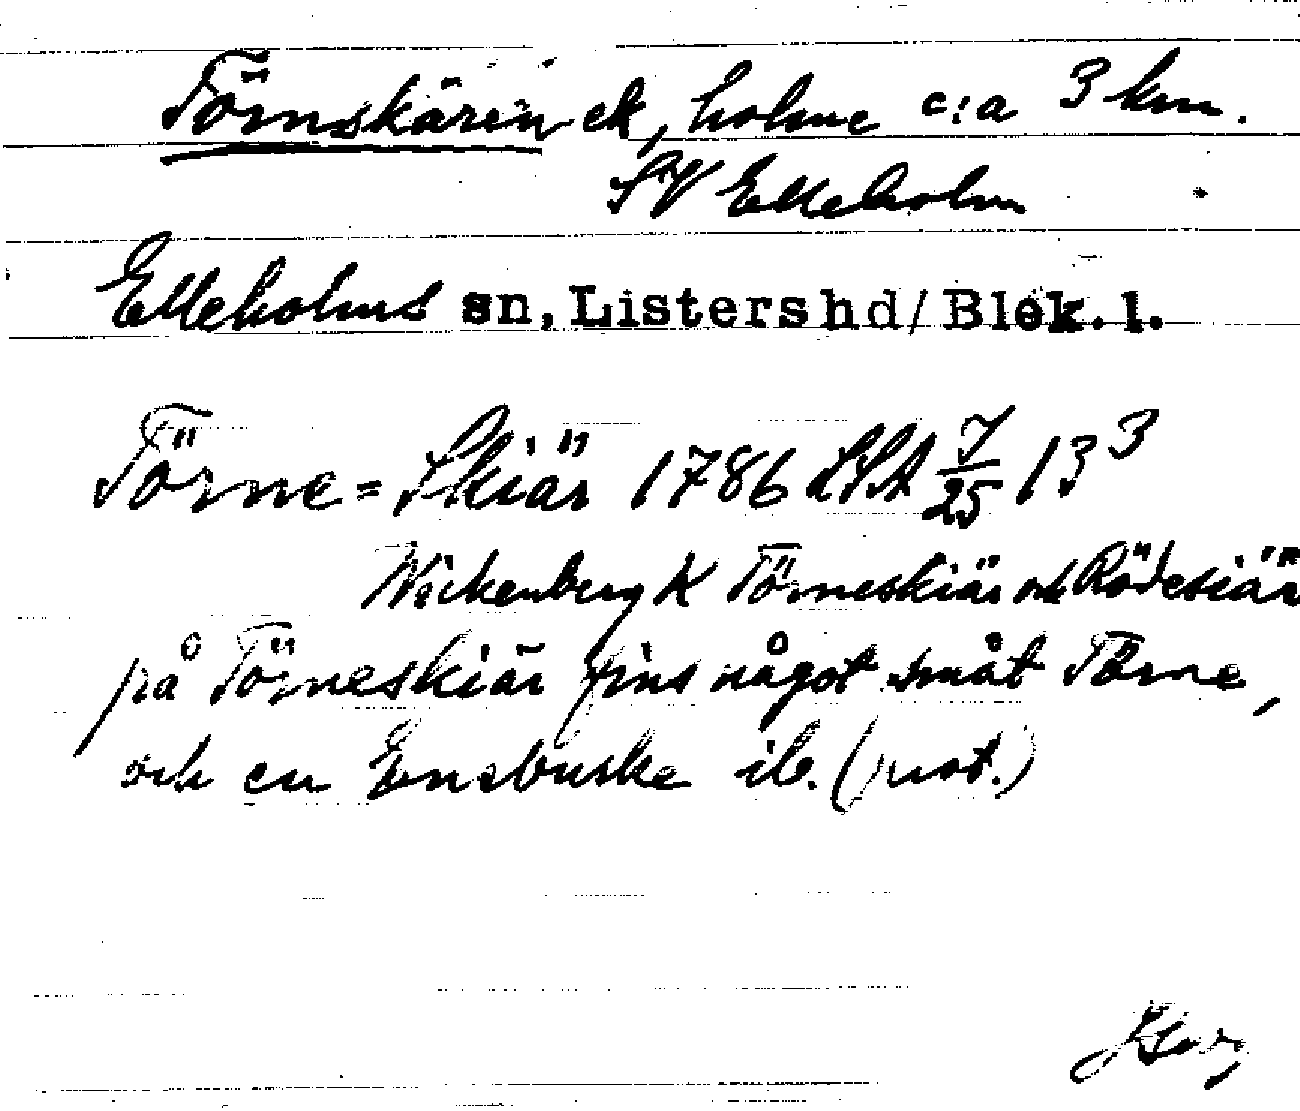 Törnskären ek, holme c:a 3 km.
SV Elleholm
Elleholms sn, Listers hd/Blek. l.
Törne = Skiär 1786 LSA 7/25 13³
Wickenberg K Törneskiär och Rödeskiär
på Törneskiär fins något småt Törne,
och en Enebuske ib. (prot.)